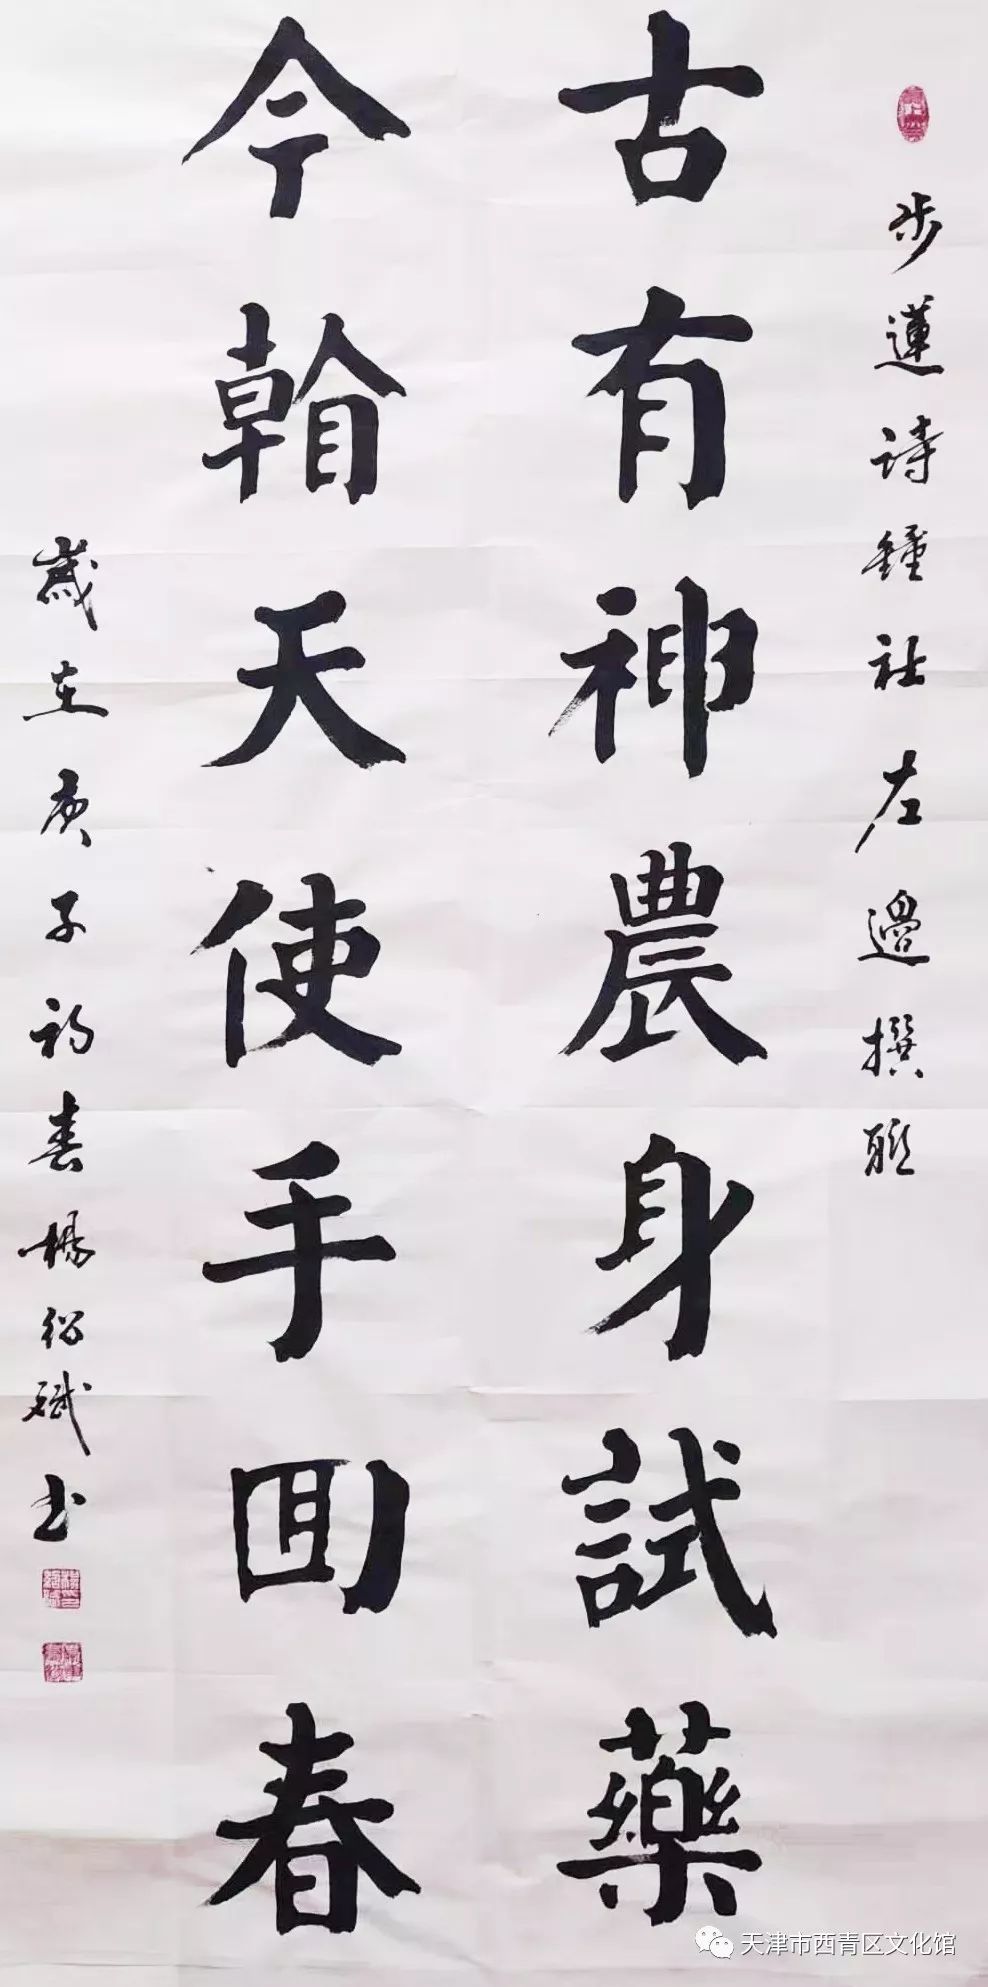 步蓮詩鍾社左邊撰联
古有神農身試藥
今看天使手回春
歲在庚子初春楊紹斌书
天津市西青区文化馆